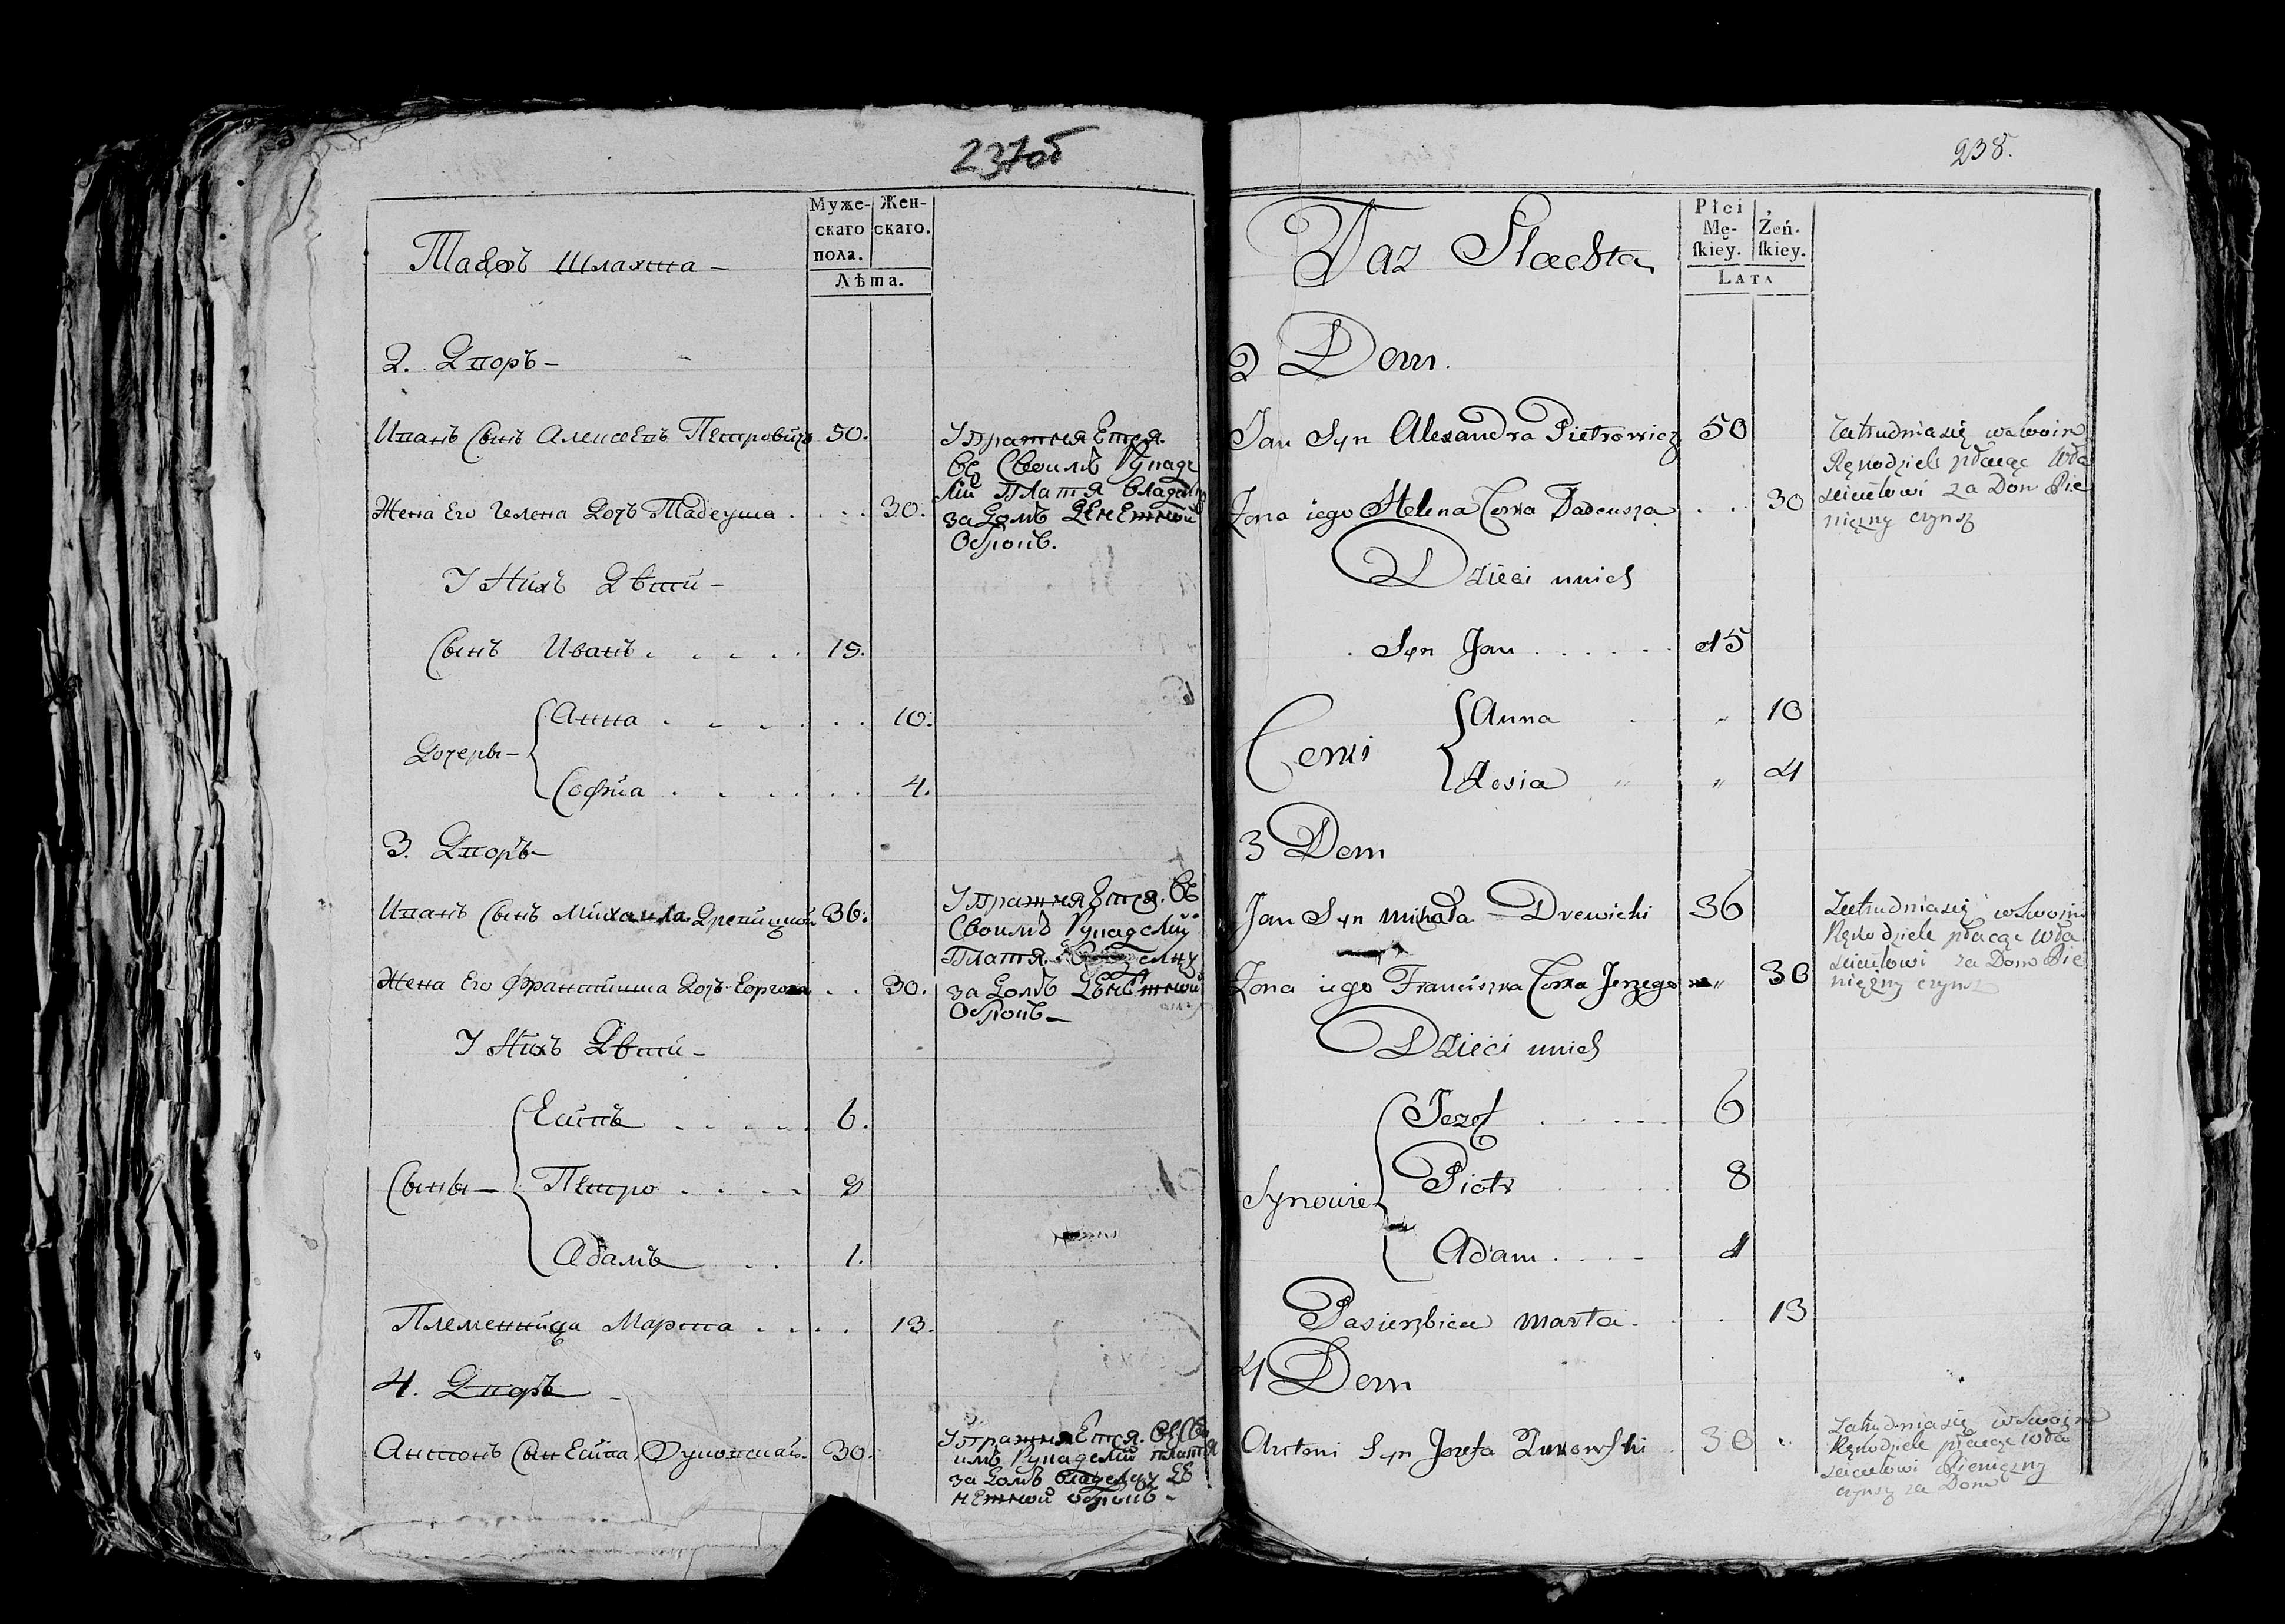 237об
Муже-
скаго
пола.
Жен-
скаго.
Лѣта.
Таджъ Шляхта –
2. Дворъ –
Иванъ Сынъ Алексеевъ Петровичъ 50.
Упражняется
въ своимъ рукаде
лии платя владельцу
за домъ денежной
оброкъ.
Жена Его Гелена Дочъ Тадеуша . . . . 30.
У Нихъ Дѣти –
Сынъ Иванъ . . . . . 15.
Дочеры –
Анна . . . . . . 10.
Софиа . . . . . . 4.
3. Дворъ –
Иванъ Сынъ Михаила Древицкий 36.
Упражняется въ
своимъ рукаделии
платя владельцу
за домъ денежной
оброкъ –
Жена Его Францишка Дочъ Еоргега . . 30.
У Нихъ Дѣти –
Сыны –
Есипъ . . . . . 6.
Петро . . . . 8
Адамъ . . 1.
Племенница Марта . . . . 13.
4. Дворъ –
Антонъ Сын Есипа 30.
Упражняется въ сво
имъ рукаделии платя
за домъ владельцу де
нежной оброкъ –
238.
Płci
Mę-
ſkiey.
Żeń-
ſkiey.
LATA
Taz Slachta
2 Dom.
Jan Syn Alexandra Pietrowicz 50
Zatrudnia się w swoim
Rękodziele płacąc Wła
scicielowi za Dom Pie
nięzny czynsz
Zona iego Helena Corka Tadeusza . . . 30
Dzieci u nich
Syn Jan . . . . . . 15
Corki
Anna . „ 10
Zosia „ „ 4
3 Dom
Jan Syn Michała Drewicki 36
Zatrudnia się w swoim
Rękodziele płacąc Wła
scicielowi za Dom Pie
nięzny czynsz
Zona iego Franciszka Corka Jerzego „ 30
Dzieci u nich
Synowie
Jozef . . . . . 6
Piotr . . . . . 8
Adam . . . . 1
Pasierzbica Marta . . . 13
4 Dom
Antoni Syn Jozefa Zukowski 30
Zatrudnia się w swoim
Rękodziele płacąc Wła
scicielowi Pienięzny
czynsz za Dom